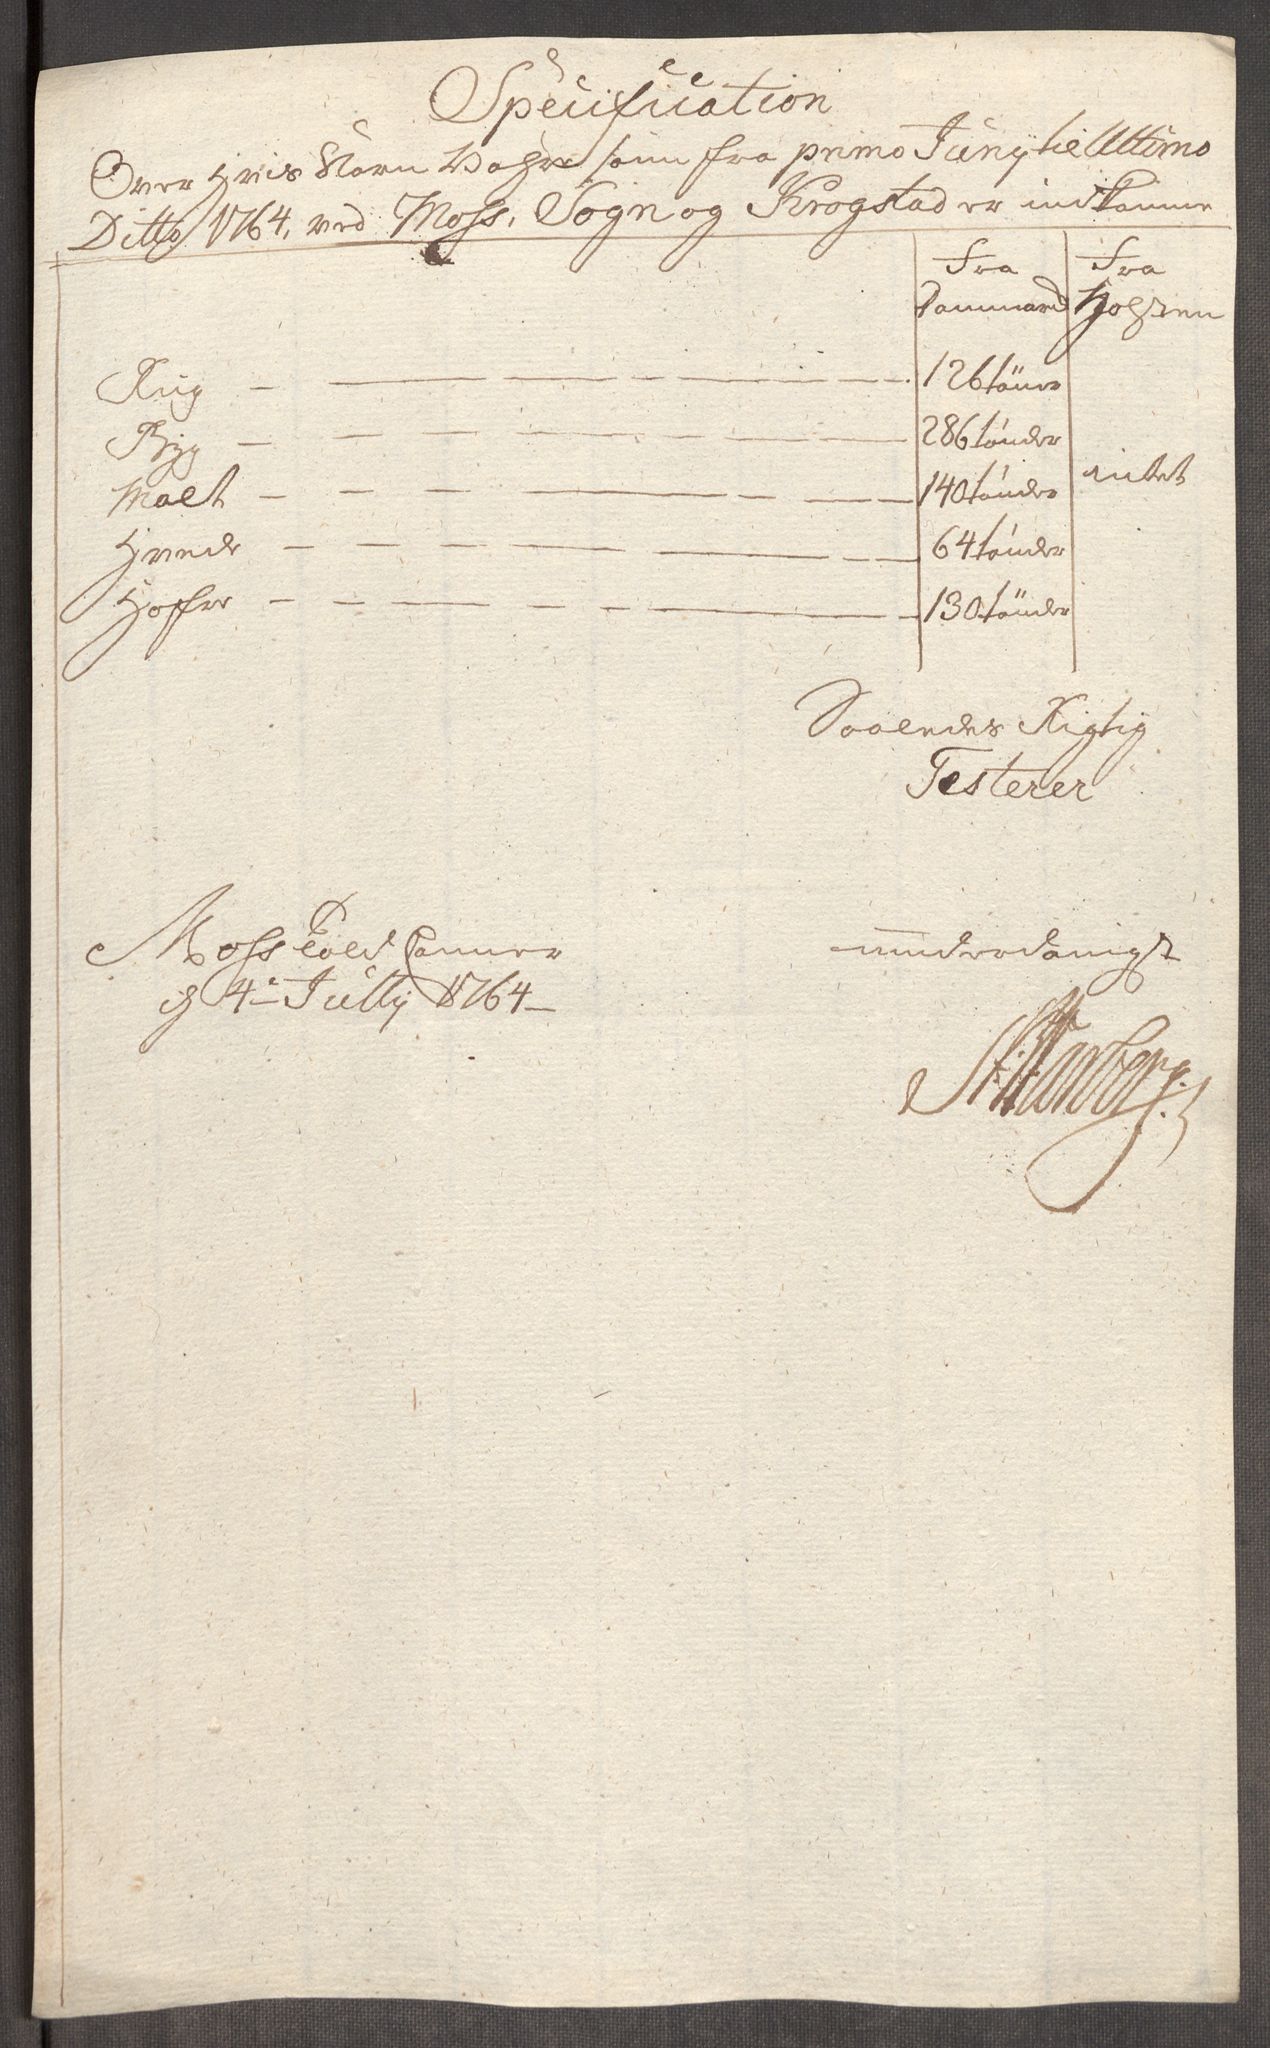 Specification
Over Hvis Korn Vahre som fra primo Juny til Ultimo
Ditto 1764, ved Moss, Sogn og Krogstad er indkomme
Fra Fra
Danmark Holsten
Rug 126 tönder
Byg 286 tönder
Malt 140 tönder intet
Hvede 64 tönder
Hafre 130 tönder
Saaledes Rigtig
Testerer
Moss Told Kammer underdanigst
d 4de July 1764